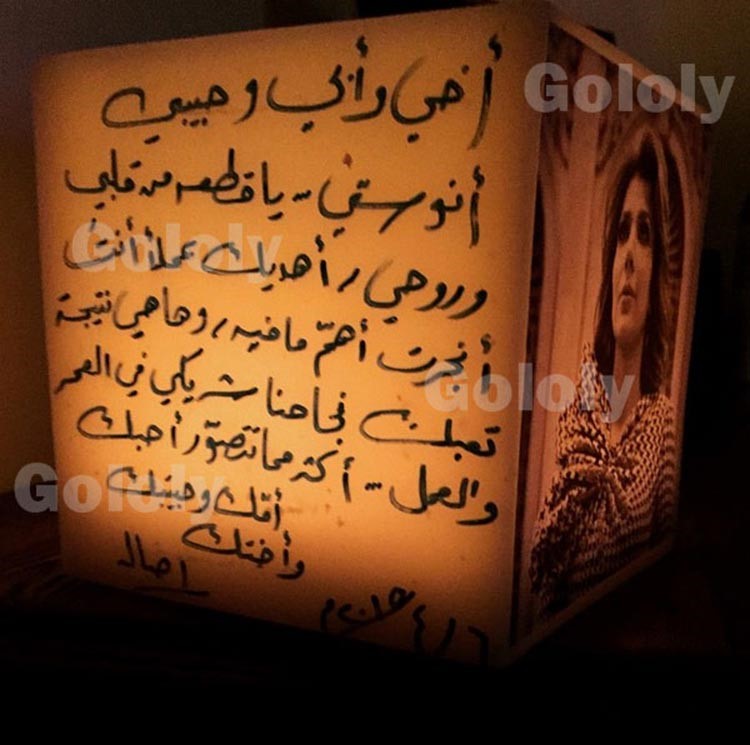 أخي وأبي وحبيبي
أنوستي .. يا قطعه من قلبي
وروحي ، أهديك عملاً أنت
أنجزت أهمّ مافيه ، وهاهي نتيجة
تعبك نجاحنا شريكي في العمر
والعمل ... أكثر مما تتصوّر أحبك
أمّك وحبيبتك
وأختك
اصاله
Gololy
Gololy
Gololy
Gololy